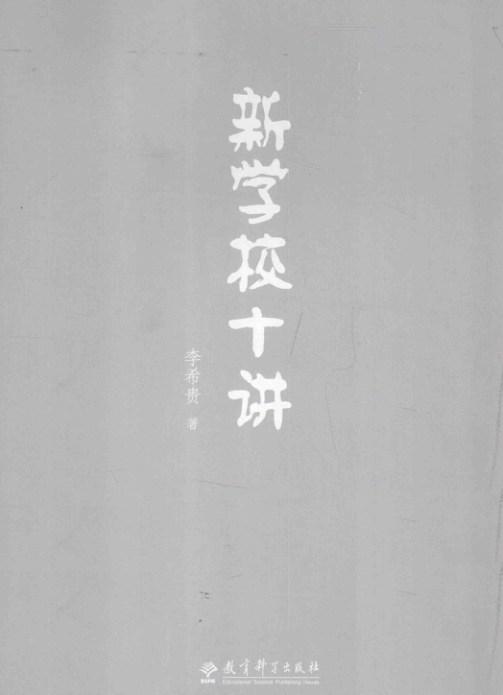 新学校十讲
李希贵 著
教育科学出版社
Educational Science Publishing House
ESPH